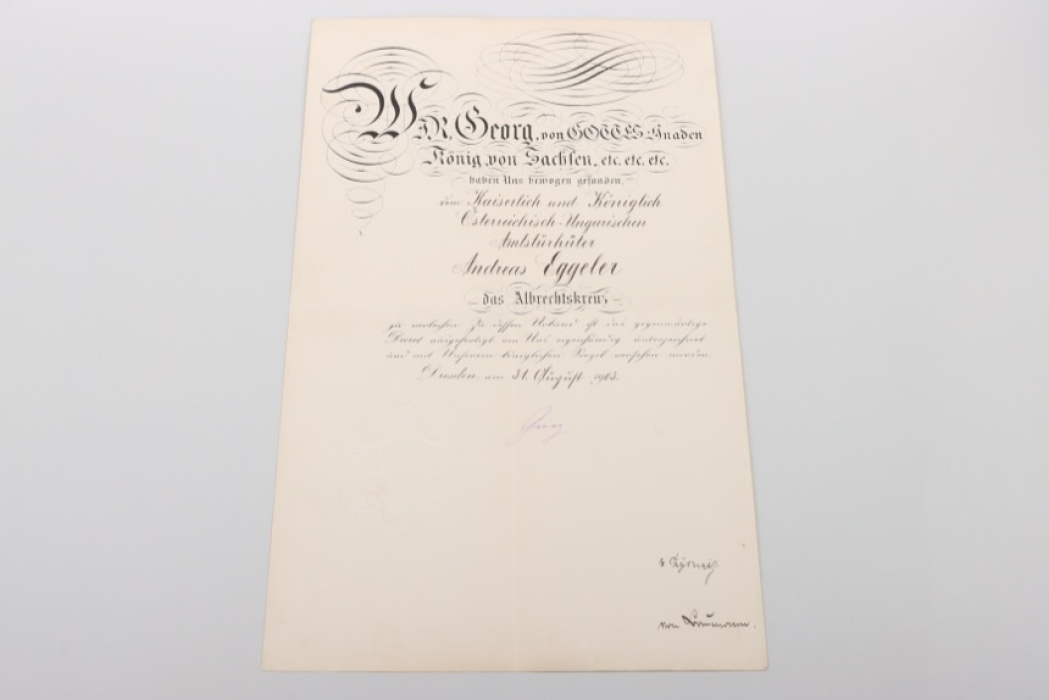 WIR, Georg, von GOTTES Gnaden
König von Sachsen, etc. etc. etc.
haben Uns bewogen gefunden,
dem Kaiserlich und Königlich
Österreichisch-Ungarischen
Amtstürhüter
Andreas Eggeler
das Albrechtskreuz
zu verleihen. Zu dessen Urkund ist das gegenwärtige
Decret ausgefertigt, von Uns eigenhändig unterzeichnet
und mit Unserem königlichen Siegel versehen worden.
Dresden, am 31. August 1903.
Georg
von